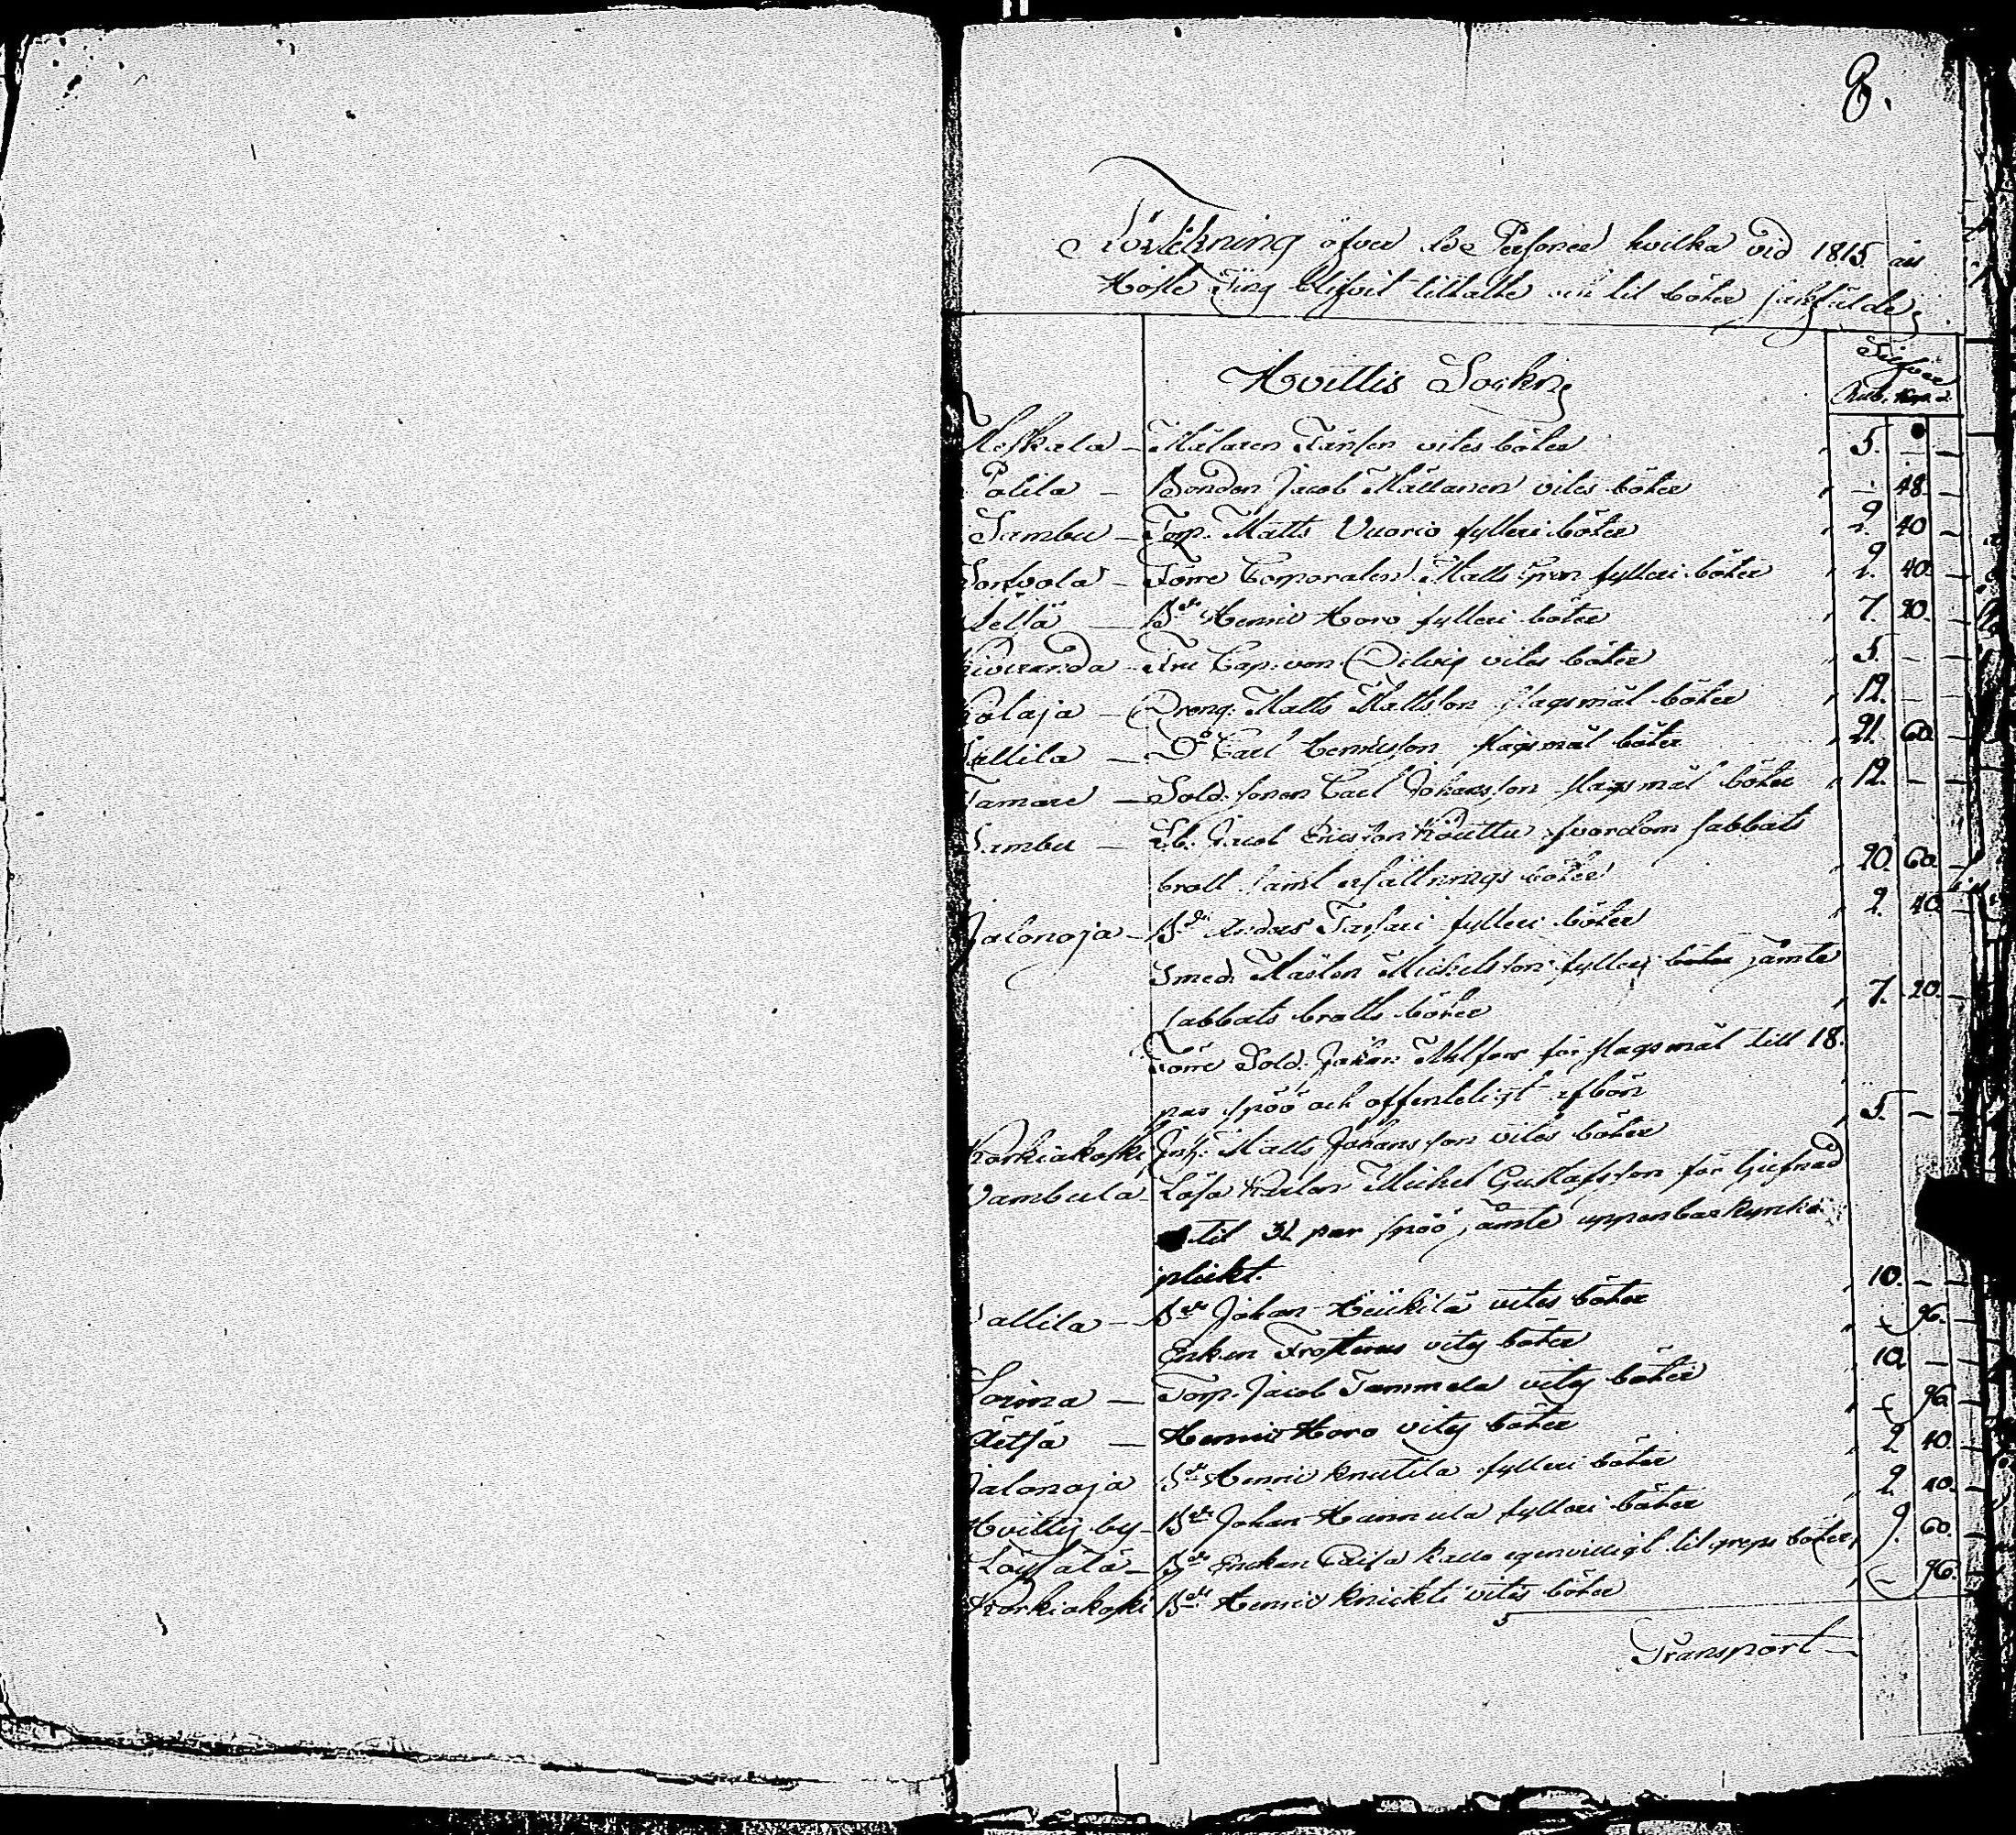 8.
Förtekning öfver de Personer hvilka vid 1815 års
Höste Ting blifvit tilltalte och til böter sakfälde,
Hvittis Sockn
Silfver
Rub. Kop.
Keskala - Mälaren Färlen vites böter 5. - -
Palila - Bonden Jacob Mällänen vites böter - 48. -
Sambu - Torp. Matts Vuorio fylleri böter 2. 40 -
Sontvola - Förre Corporalen Matts fylleri böter 2. 40 -
Kettä - Bd Henric Horo fylleri böter 7. 20. -
Kiviranda - Fru Cap. von Qvilvig vites böter 5. - -
Kolaja - Dreng. Matts Mattsson slagsmål böter 12. - -
Sallila - Do Carl Henricsson slagsmål böter 21. 60 -
Tamare - Sold. sonen Carl Johansson slagsmål böter 12. - -
Sambu - Lb. Jacob Ericsson Köuttu svordom sabbats
brott samt ersättnings böter 20. 60 -
Jalonoja - Bd Anders Tarsari fylleri böter 2. 40 -
Smed. Mästen Michelsson fylleri böter jämte
sabbats brotts böter 7. 20. -
Förre Sold. Johan Ahlfors för slagsmål till 18.
par spöö och offenteligt afbön
Korkiakoski Inh. Matts Johansson vites böter 5. - -
Vambula Lösa Karlen Michel Gustafsson för tjufnad
til 32 par spöö jämte uppenbar kyrko
plickt.
Sallila - Bd Johan Heickilä vites böter 10. - -
Enkan Frosterus vites böter - 96. -
Loima - Torp. Jacob Tammela vites böter 10. - -
Kettä - Henric Horo vites böter - 96. -
Jalonoja Bd Henric Knutila fylleri böter 2 40. -
Hvittis by - Bd Johan Hannula fylleri böter 2. 40. -
Löysälä - Bd Enckan Caisa Kallo egenvilligt til greps böter 9. 60. -
Korkiakoski Bd Henric Knickti vites böter - 96. -
Transport -